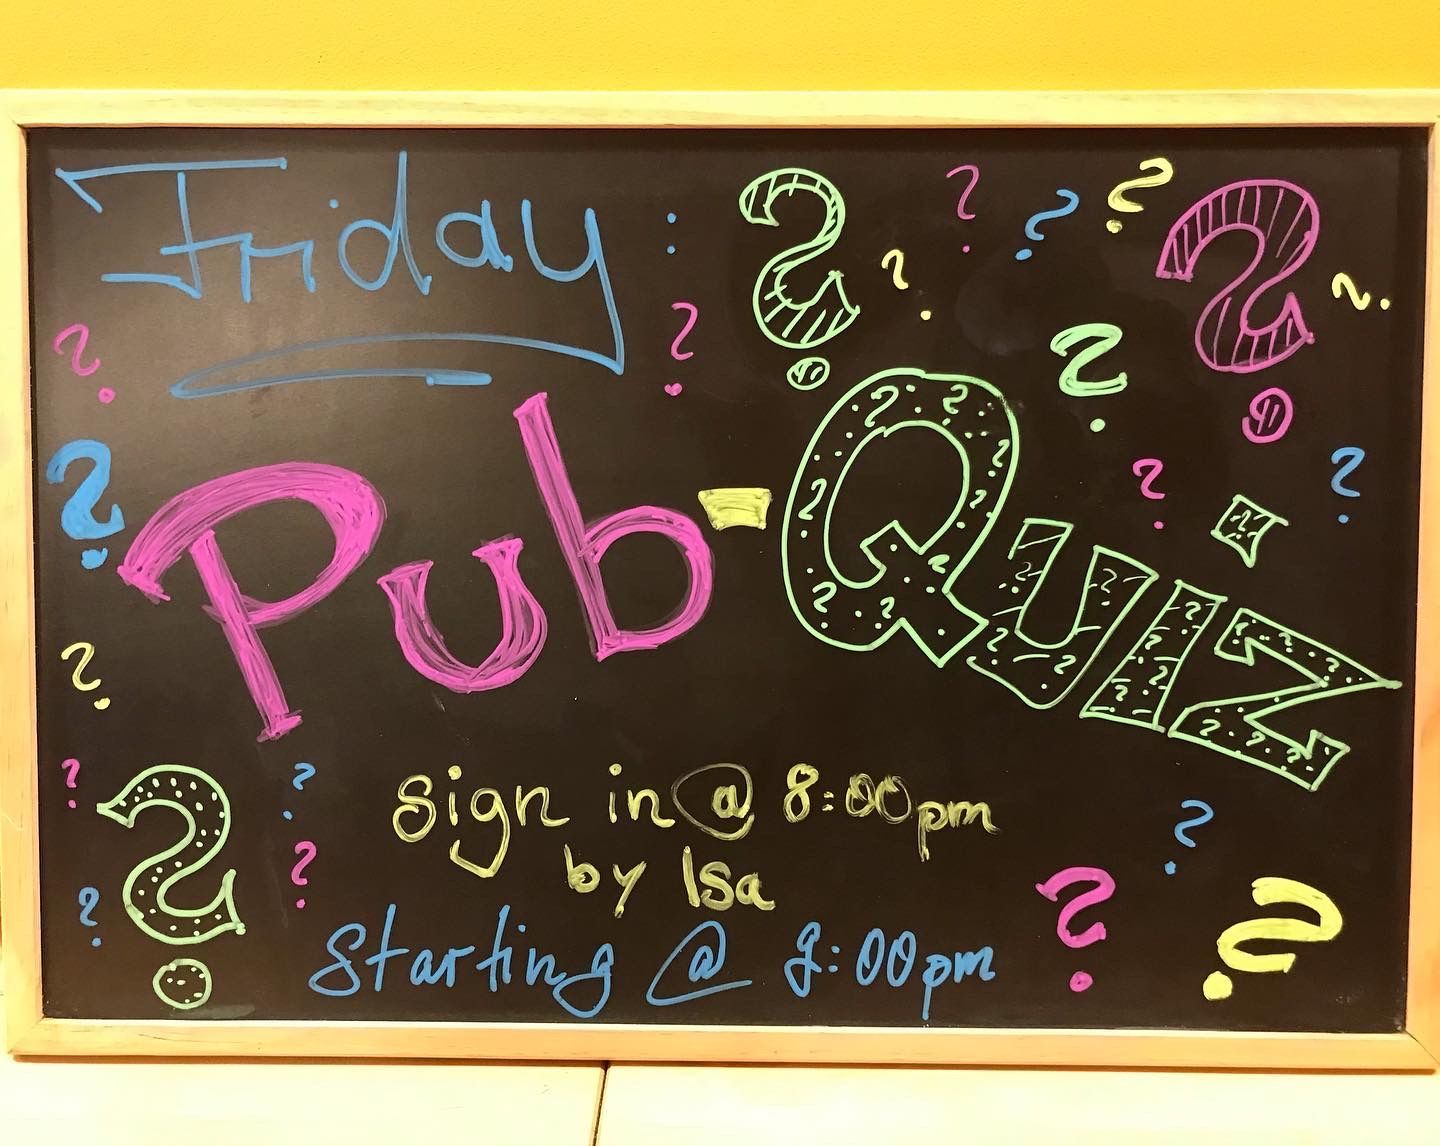 Friday:
Pub-Quiz
sign in @ 8:00pm
by Isa
Starting @ 9:00pm